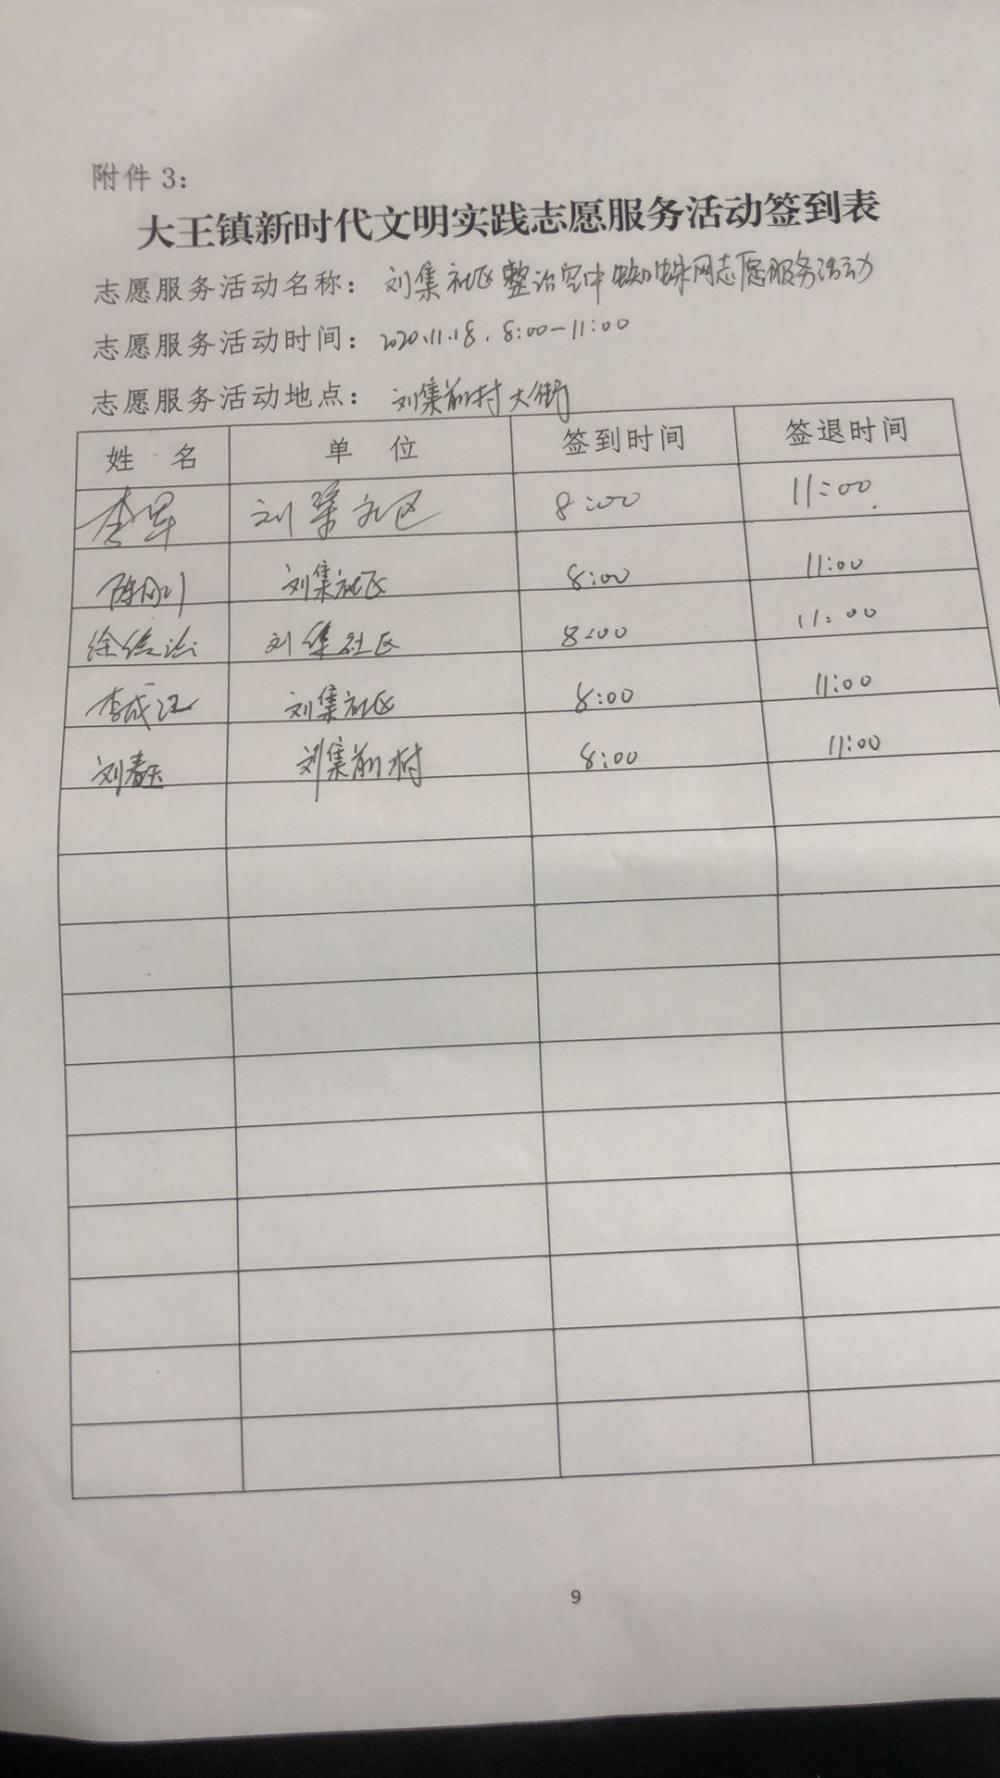 附件 3：
大王镇新时代文明实践志愿服务活动签到表
志愿服务活动名称： 刘集社区整治空中蜘蛛网志愿服务活动
志愿服务活动时间： 2020.11.18. 8:00-11:00
志愿服务活动地点： 刘集前村大街
姓 名 单 位 签到时间 签退时间
李军 刘集社区 8:00 11:00
刘集社区 8:00 11:00
刘集社区 8:00 11:00
刘集社区 8:00 11:00
刘集前村 8:00 11:00
9